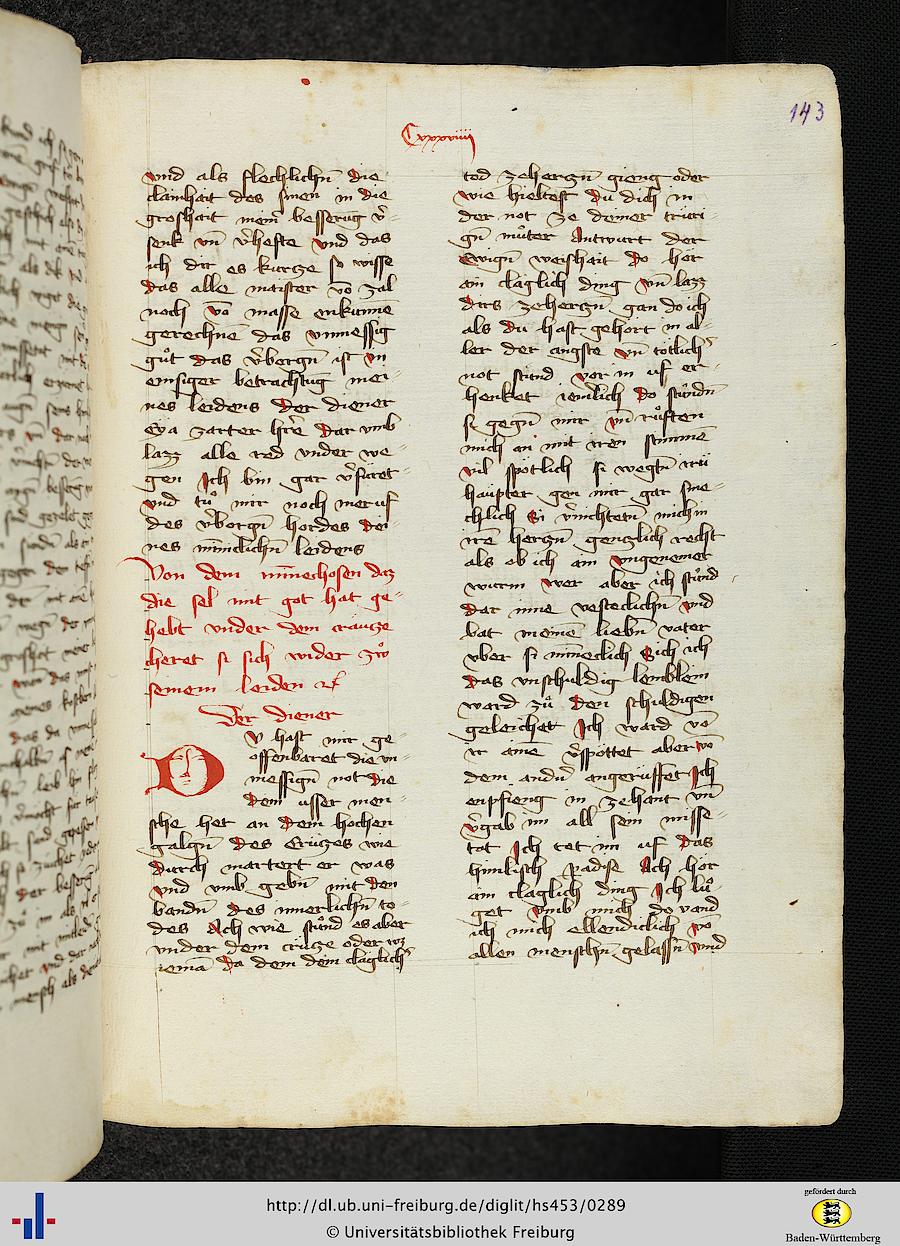 143
Cxxxviiij
vnd als flechlichn̄ die
clainhait des sinen in die
groshait mein̄ besserūg v̓-
senk vn̄ v̓hefte vnd das
ich dir es kurcze so wisse
das alle maister vō zal
noch vō masse enkūnnē
gerechnē das vnmessig
gůt das v̓borgn̄ ist in
emsiger betrachtūg mei-
nes leidens der diener
eya zarter hr̄e dar vmb
lazz alle red vnder we-
gen Ich bin gar v̓füret
vnd tů mir noch mer uf
des v̓borgn̄ hordes dei
nes mīnclichn̄ leidens
Von dem minechosen daz
die sel mit got hat ge-
hebt vnder dem cräucze
cheret si sich wider zwͦ
seinem leiden
Der diener
DV hast mir ge-
offenbaret die vn-
messign̄ not die
dem usser men-
sche het an dem hochen
galgn̄ des Cruczes wie
durch martert er was
vnd vmb gebn̄ mit den
bandn̄ des innerlichn̄ to-
des Ach wie stůnd es aber
vnder dem crucze oder wz
iemā da dem dem claglich̓
tod zeherczn̄ gieng oder
wie hieltest du dich in
der not ze deiner truri-
gn̄ můter Antwurt der
Ewign̄ weishait do hör
ain claglich ding vn̄ lazz
dirs zeherczn̄ gan do ich
als du hast gehort in al-
ler der angste vn̄ totlich̓
not stund vor in uf er-
henket iemlich do stůndn̄
si gegn̄ mir vn̄ růften
mich an mit iren stimmē
vil spötlich si wegtn̄ irü
häupter gen mir gar sme-
chlich Si v̓nichtetn̄ mich in
irē herczn̄ genczlich recht
als ob ich ain vngenemer
wurm wer aber ich stůnd
dar inne vesteclichn̄ vnd
bat meinē liebn̄ vater
vber si mīneclich Sich ich
das vnschuldig lemblein
ward zů den schuldigen
geleichet Ich ward vō
ir ainē v̓spottet aber vō
dem andn̄ angerüffet Ich
enpfieng in zehant vn̄
v̓gab im all sein misse
tat Ich tet im uf das
himlisch padise Ach hör
ain claglich ding Ich lů-
get vmb mich do vand
ich mich ellendiclich vō
allen menschn̄ gelassn̄ vnd
http://dl.ub.uni-freiburg.de/diglit/hs453/0289
© Universitätsbibliothek Freiburg
gefördert durch
Baden-Württemberg